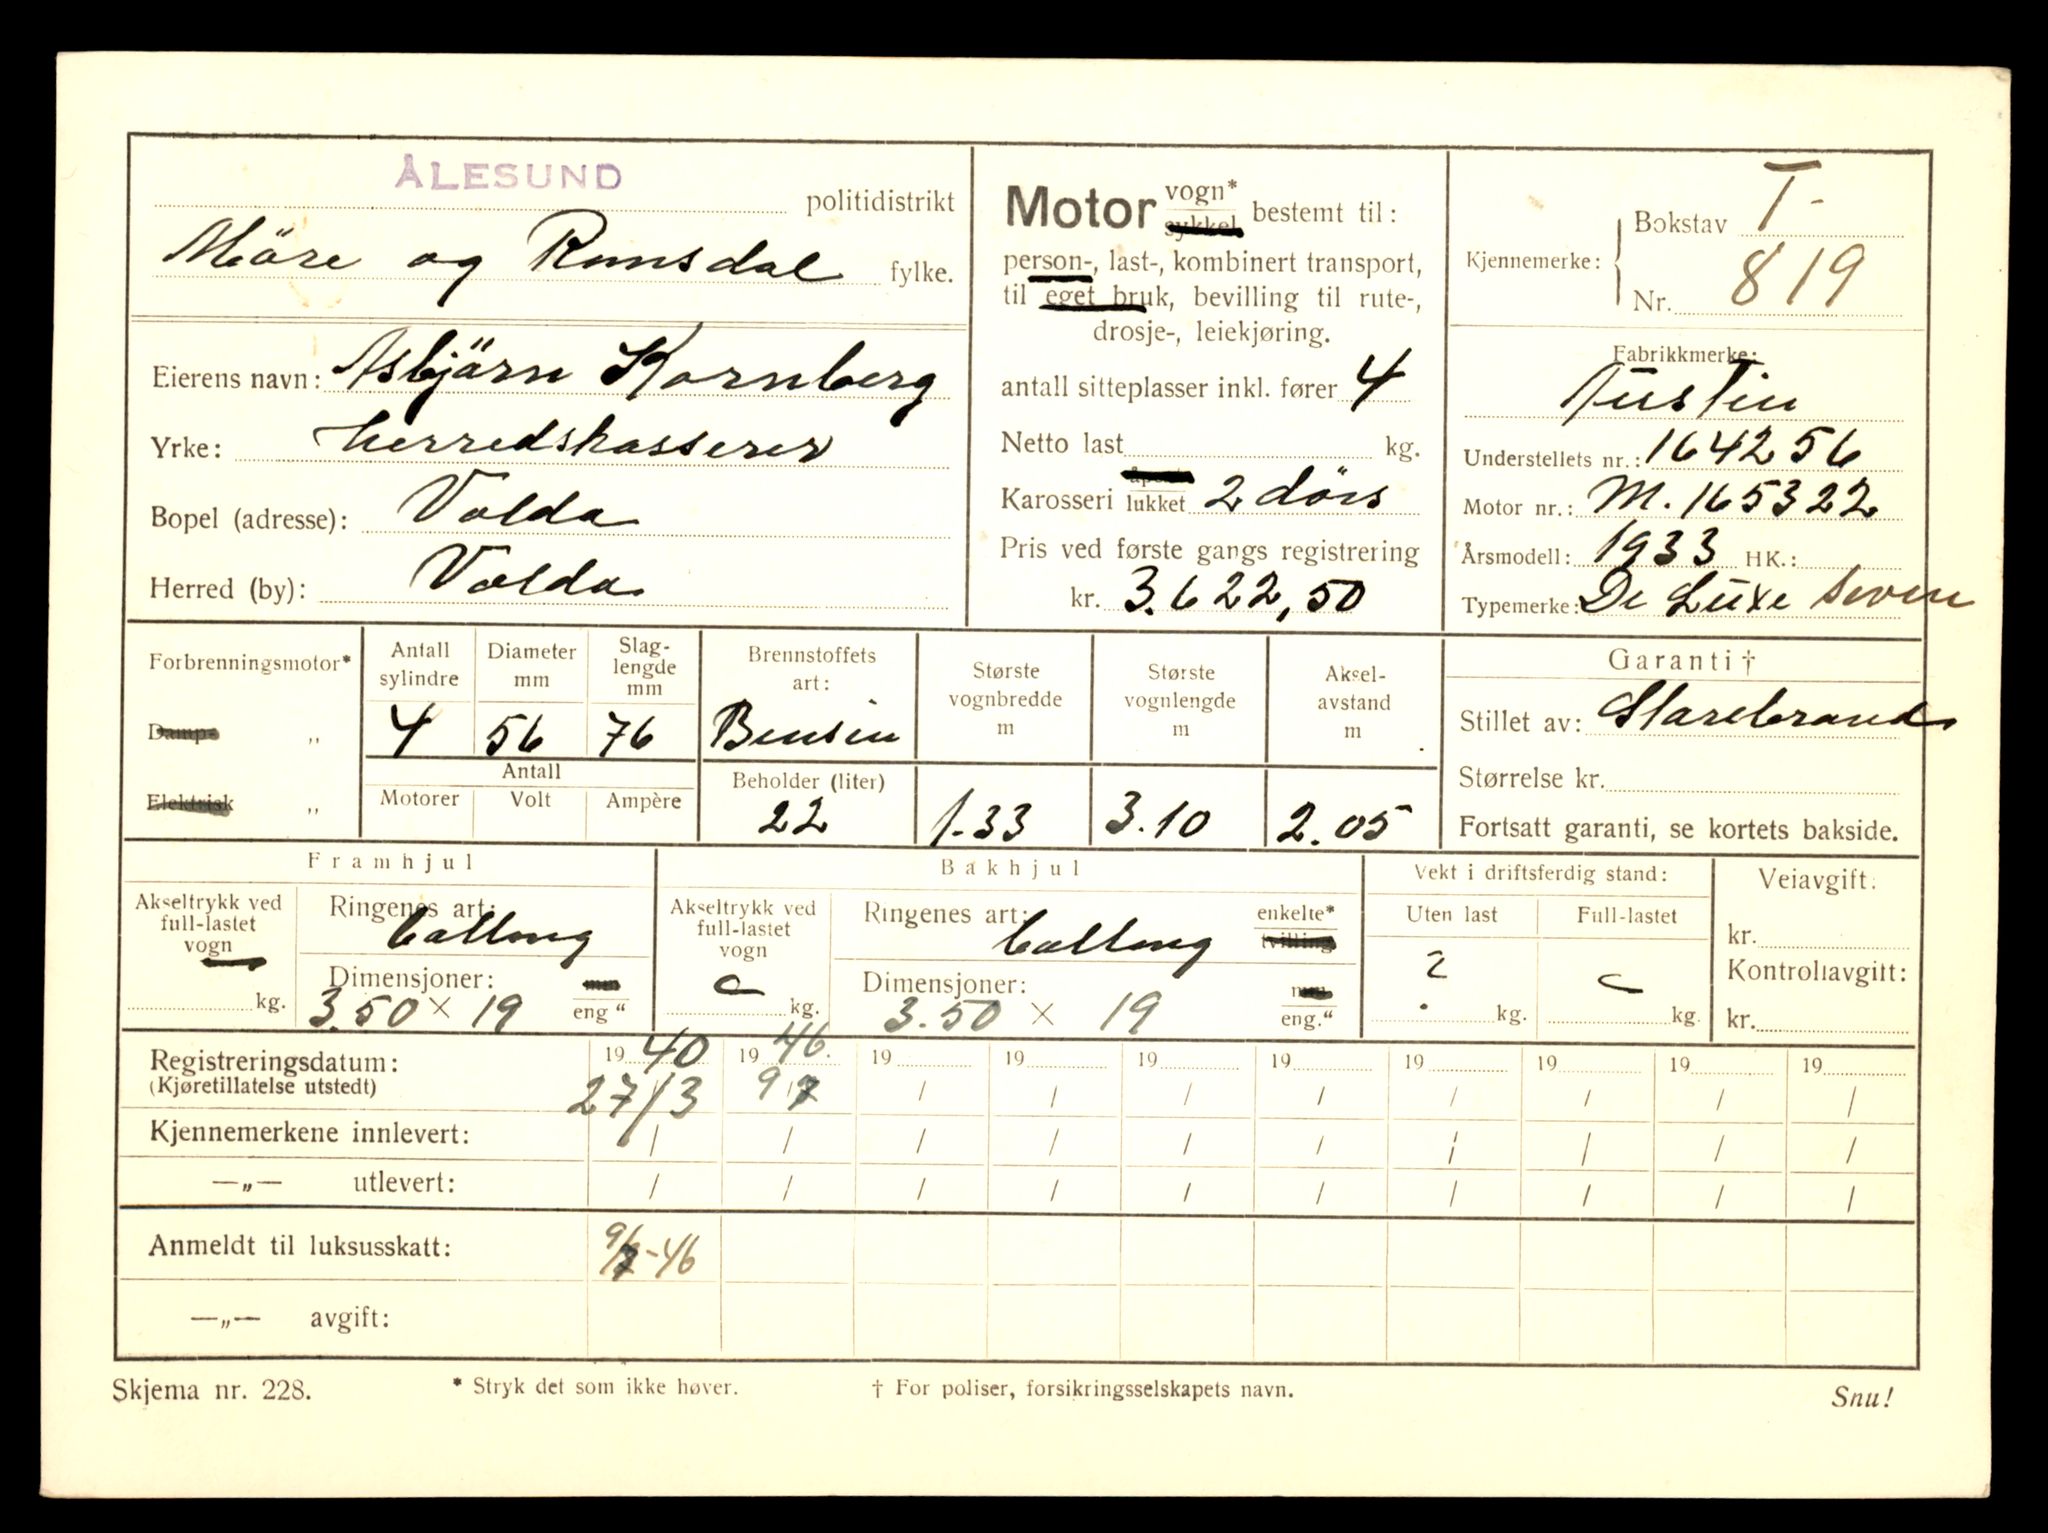 ÅLESUND politidistrikt
Möre og Romsdal fylke.
Eierens navn: Asbjörn Kornberg
Yrke: herredskasserer
Bopel (adresse): Volda
Herred (by): Volda
Motor vogn* sykkel bestemt til:
person-, last-, kombinert transport,
til eget bruk, bevilling til rute-,
drosje-, leiekjøring.
antall sitteplasser inkl. fører 4
Netto last kg.
Karosseri åpent lukket 2 dörs
Pris ved første gangs registrering
kr. 3.622,50
Kjennemerke: Bokstav T-
Nr. 819
Fabrikkmerke:
Austin
Understellets nr.: 164256
Motor nr.: M.165322
Årsmodell: 1933 HK.:
Typemerke: De Luxe seven
Forbrenningsmotor*
Damp- „
Elektrisk „
Antall sylindre
4
Diameter mm
56
Slag-lengde mm
76
Antall
Motorer Volt Ampère
Brennstoffets art:
Bensin
Beholder (liter)
22
Største vognbredde m
1.33
Største vognlengde m
3.10
Aksel-avstand m
2.05
Garanti †
Stillet av: Storebrand
Størrelse kr.
Fortsatt garanti, se kortets bakside.
Framhjul
Akseltrykk ved full-lastet vogn
kg.
Ringenes art: ballong
Dimensjoner: mm
3.50 × 19 eng "
Bakhjul
Akseltrykk ved full-lastet vogn
kg.
Ringenes art: ballong enkelte* tvilling
Dimensjoner: mm
3.50 × 19 eng."
Vekt i driftsferdig stand:
Uten last Full-lastet
? kg. kg.
Veiavgift:
kr.
Kontrollavgift:
kr.
Registreringsdatum: 19 40 19 46. 19 19 19 19 19 19 19 19
(Kjøretillatelse utstedt) 27/3 9/7 / / / / / / / /
Kjennemerkene innlevert: / / / / / / / / / /
—„— utlevert: / / / / / / / / / /
Anmeldt til luksusskatt: 9/7-46
—„— avgift:
Skjema nr. 228. * Stryk det som ikke høver. † For poliser, forsikringsselskapets navn. Snu!